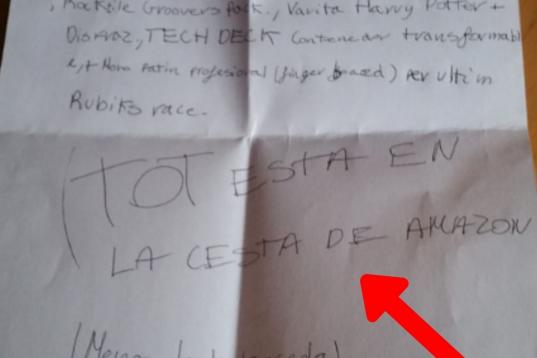 , Rocktile Groovers Pack., Varita Harry Potter +
Disfraz, TECH DECK Contenedor transformabl
e, + Mono patin profesional (finger board) Per ultim
Rubiks race.
(TOT ESTA EN
LA CESTA DE AMAZON